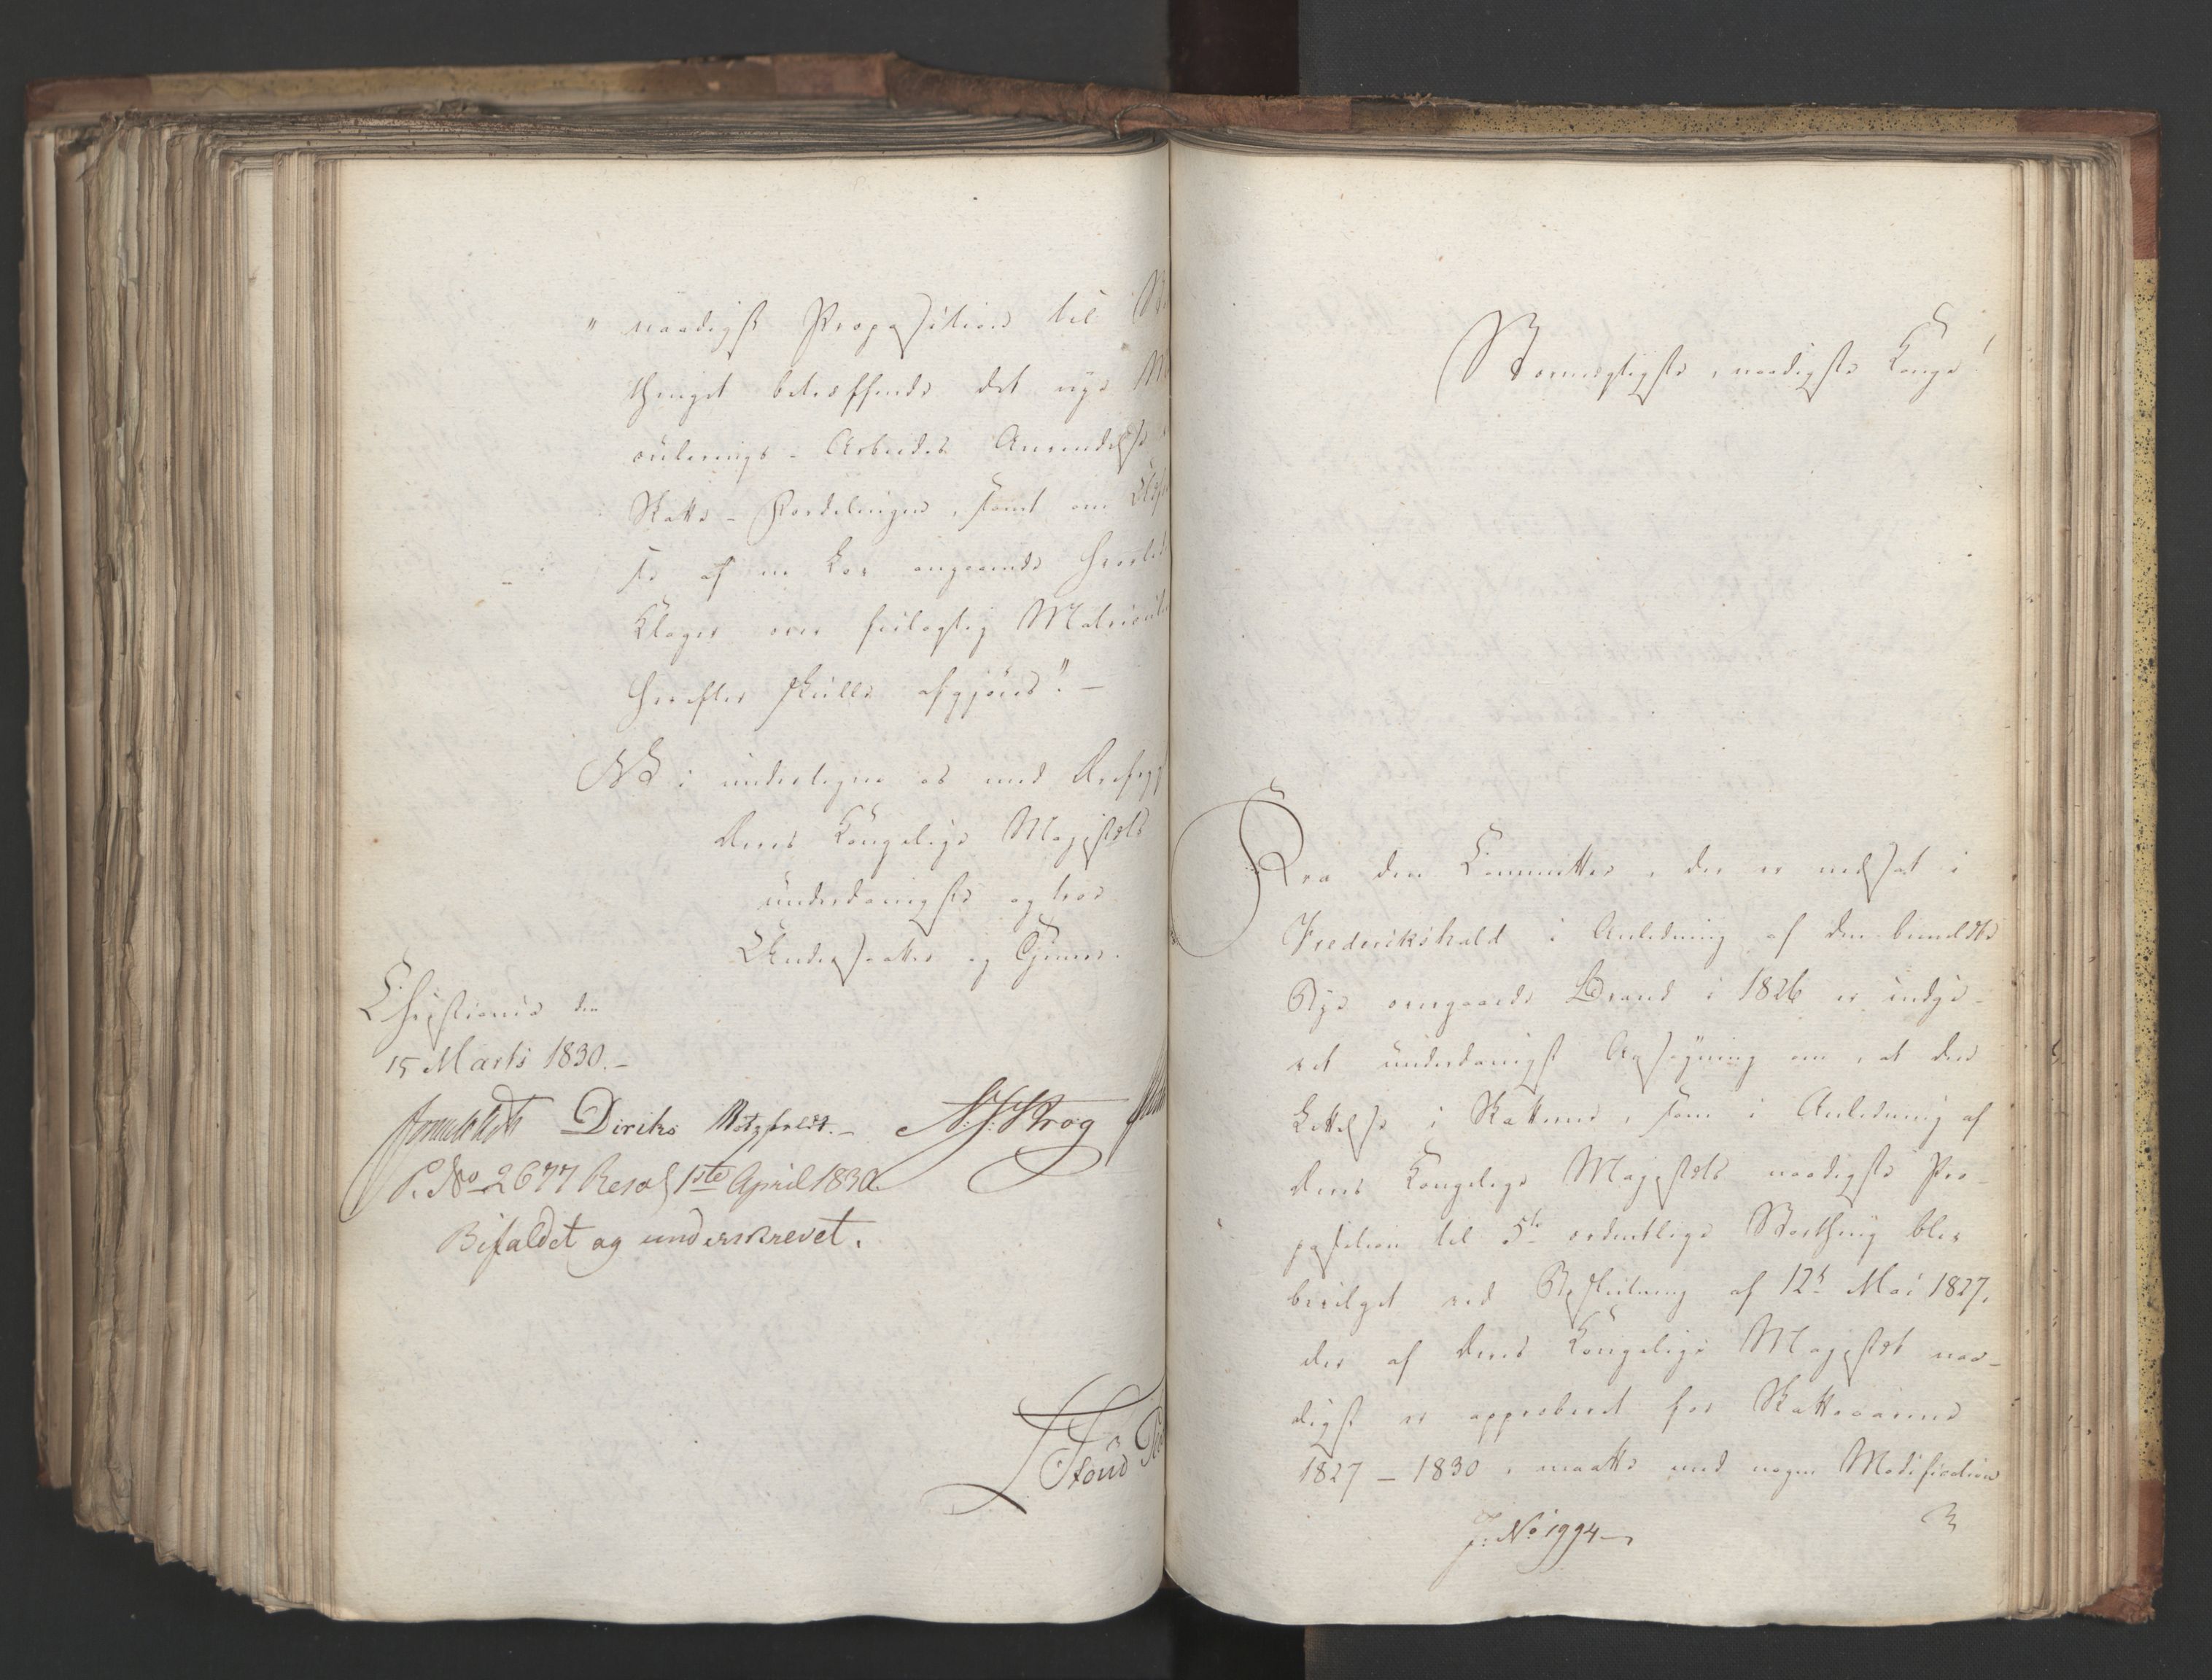 " naadigst Proposition til
thinget betræffende det nye
culerings-Arbeides Anvendelse
Skatte-Fordelingen, samt om
se af en Lov angaaende
Klager over feilagtig
herefter skulle afgjøres". —
Vi undertegne os med
Deres Kongelige Majestæts
underdanigste og troe
Undersaatter og Tjenere.
Christiania den
15 Marts 1830. —
Diriks Motzfeldt. — N. J. Krog
P. No 2677 Resol 1ste April 1830.
Bifaldet og underskrevet.
Stormægtigste, naadigste Konge!
Fra den Committee, der er nedsat i
Frederikshald i Anledning af den bemeldte
Bye overgaaede Brand i 1826 er indgi-
vet underdanigst Ansøgning om, at den
Lettelse i Skatterne, som i Anledning af
Deres Kongelige Majestæts naadigste Pro-
position til 5te ordentlige Storthing blev
bevilget ved Beslutning af 12te Mai 1827,
der af Deres Kongelige Majestæt naa-
digst er approberet for Skatteaarene
1827 — 1830, maatte med nogen Modification
J: No 1994